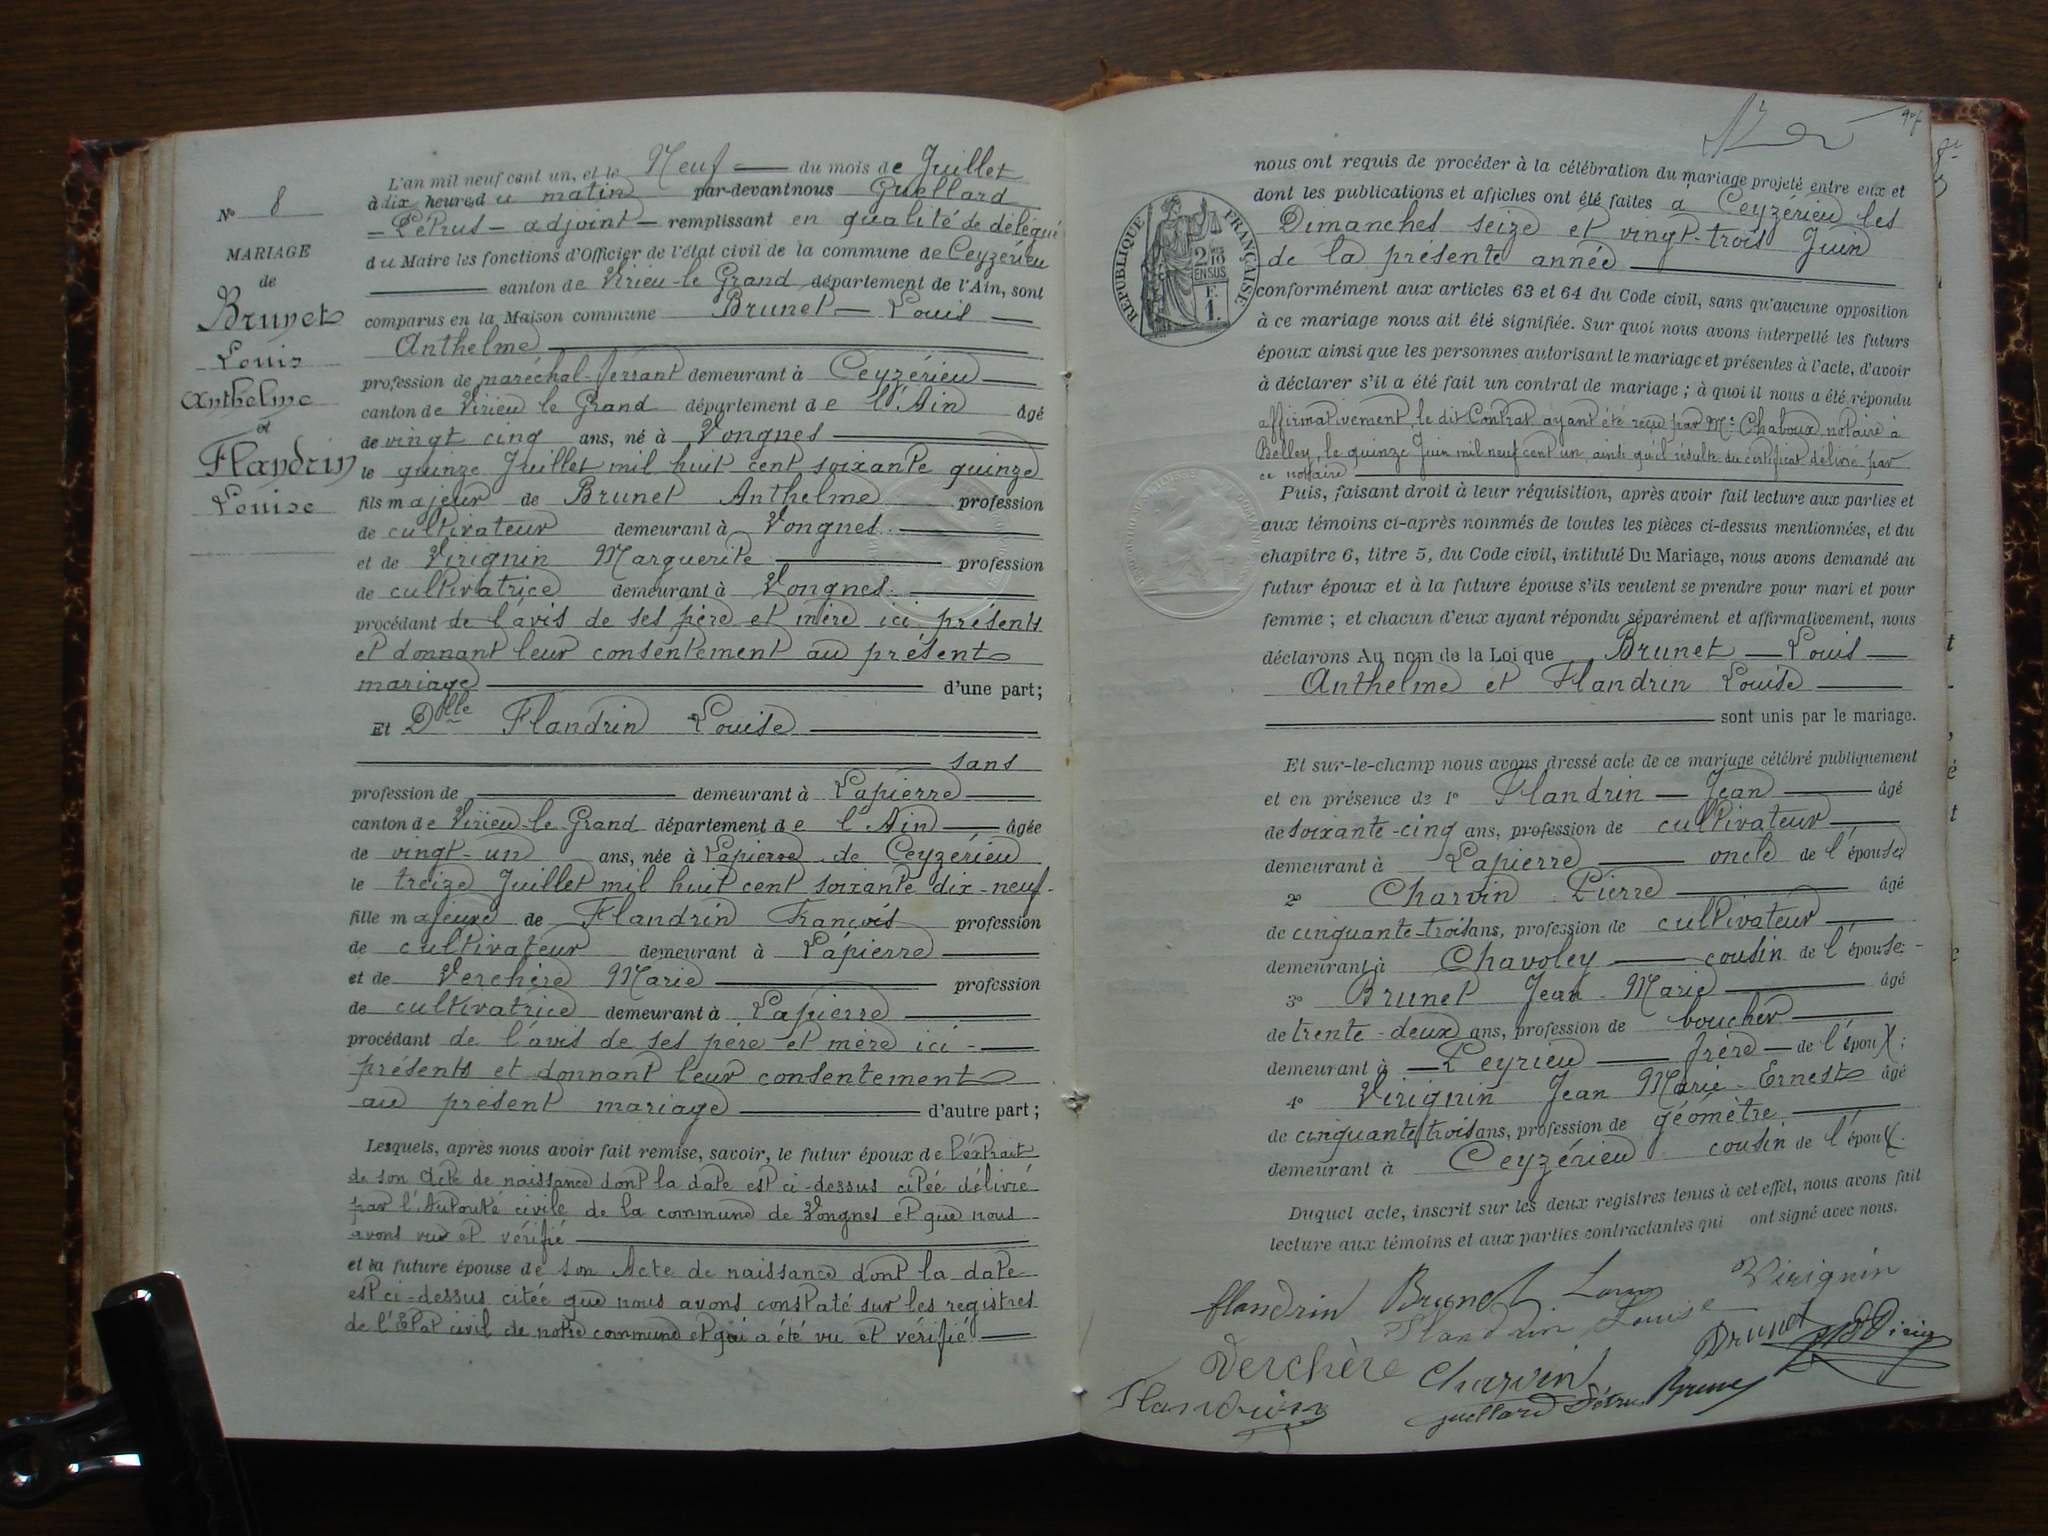 N° 8
MARIAGE
de
Brunet
Louis
Anthelme
et
Flandrin
Louise
L'an mil neuf cent un, et le Neuf du mois de Juillet
à dix heures du matin par-devant nous Guellard
Pétrus adjoint remplissant en qualité de délégué
du Maire les fonctions d'Officier de l'état civil de la commune de Ceyzérieu
canton de Virieu-le Grand département de l'Ain, sont
comparus en la Maison commune Brunet Louis
Anthelme
profession de maréchal-ferrant demeurant à Ceyzérieu
canton de Virieu le Grand département de l'Ain âgé
de vingt cinq ans, né à Vongnes
le quinze Juillet mil huit cent soixante quinze
fils majeur de Brunet Anthelme profession
de cultivateur demeurant à Vongnes
et de Virignin Marguerite profession
de cultivatrice demeurant à Vongnes
procédant de l'avis de ses père et mère ici présents
et donnant leur consentement au présent
mariage d'une part;
Et Dlle Flandrin Louise
sans
profession de demeurant à Lapierre
canton de Virieu-le Grand département de l'Ain âgée
de vingt-un ans, née à Lapierre de Ceyzérieu
le treize Juillet mil huit cent soixante dix-neuf
fille majeure de Flandrin François profession
de cultivateur demeurant à Lapierre
et de Verchère Marie profession
de cultivatrice demeurant à Lapierre
procédant de l'avis de ses père et mère ici
présents et donnant leur consentement
au présent mariage d'autre part;
Lesquels, après nous avoir fait remise, savoir, le futur époux de l'extrait
de son Acte de naissance dont la date est ci-dessus citée délivré
par l'Autorité civile de la commune de Vongnes et que nous
avons vu et vérifié
et la future épouse de son Acte de naissance dont la date
est ci-dessus citée que nous avons constaté sur les registres
de l'Etat civil de notre commune et qui a été vu et vérifié
nous ont requis de procéder à la célébration du mariage projeté entre eux et
dont les publications et affiches ont été faites à Ceyzérieu les
Dimanches seize et vingt-trois Juin
de la présente année
RÉPUBLIQUE FRANÇAISE
conformément aux articles 63 et 64 du Code civil, sans qu'aucune opposition
à ce mariage nous ait été signifiée. Sur quoi nous avons interpellé les futurs
époux ainsi que les personnes autorisant le mariage et présentes à l'acte, d'avoir
à déclarer s'il a été fait un contrat de mariage; à quoi il nous a été répondu
affirmativement, le dit Contrat ayant été reçu par Me Chaboux notaire à
Belley, le quinze Juin mil neuf cent un, ainsi qu'il résulte du certificat délivré par
ce notaire
Puis, faisant droit à leur réquisition, après avoir fait lecture aux parties et
aux témoins ci-après nommés de toutes les pièces ci-dessus mentionnées, et du
chapitre 6, titre 5, du Code civil, intitulé Du Mariage, nous avons demandé au
futur époux et à la future épouse s'ils veulent se prendre pour mari et pour
femme; et chacun d'eux ayant répondu séparément et affirmativement, nous
déclarons Au nom de la Loi que Brunet Louis
Anthelme et Flandrin Louise
sont unis par le mariage.
Et sur-le-champ nous avons dressé acte de ce mariage célébré publiquement
et en présence de 1° Flandrin Jean âgé
de soixante-cinq ans, profession de cultivateur
demeurant à Lapierre oncle de l'épouse
2° Charvin Pierre âgé
de cinquante-trois ans, profession de cultivateur
demeurant à Chavoley cousin de l'épouse
3° Brunet Jean Marie âgé
de trente-deux ans, profession de boucher
demeurant à Peyrieu frère de l'époux;
4° Virignin Jean Marie Ernest âgé
de cinquante trois ans, profession de géomètre
demeurant à Ceyzérieu cousin de l'époux.
Duquel acte, inscrit sur les deux registres tenus à cet effet, nous avons fait
lecture aux témoins et aux parties contractantes qui ont signé avec nous.
flandrin Brunet Louis Virignin
Flandrin Louise
Verchère Charvin Brunet
Flandrin Guellard Pétrus Brunet